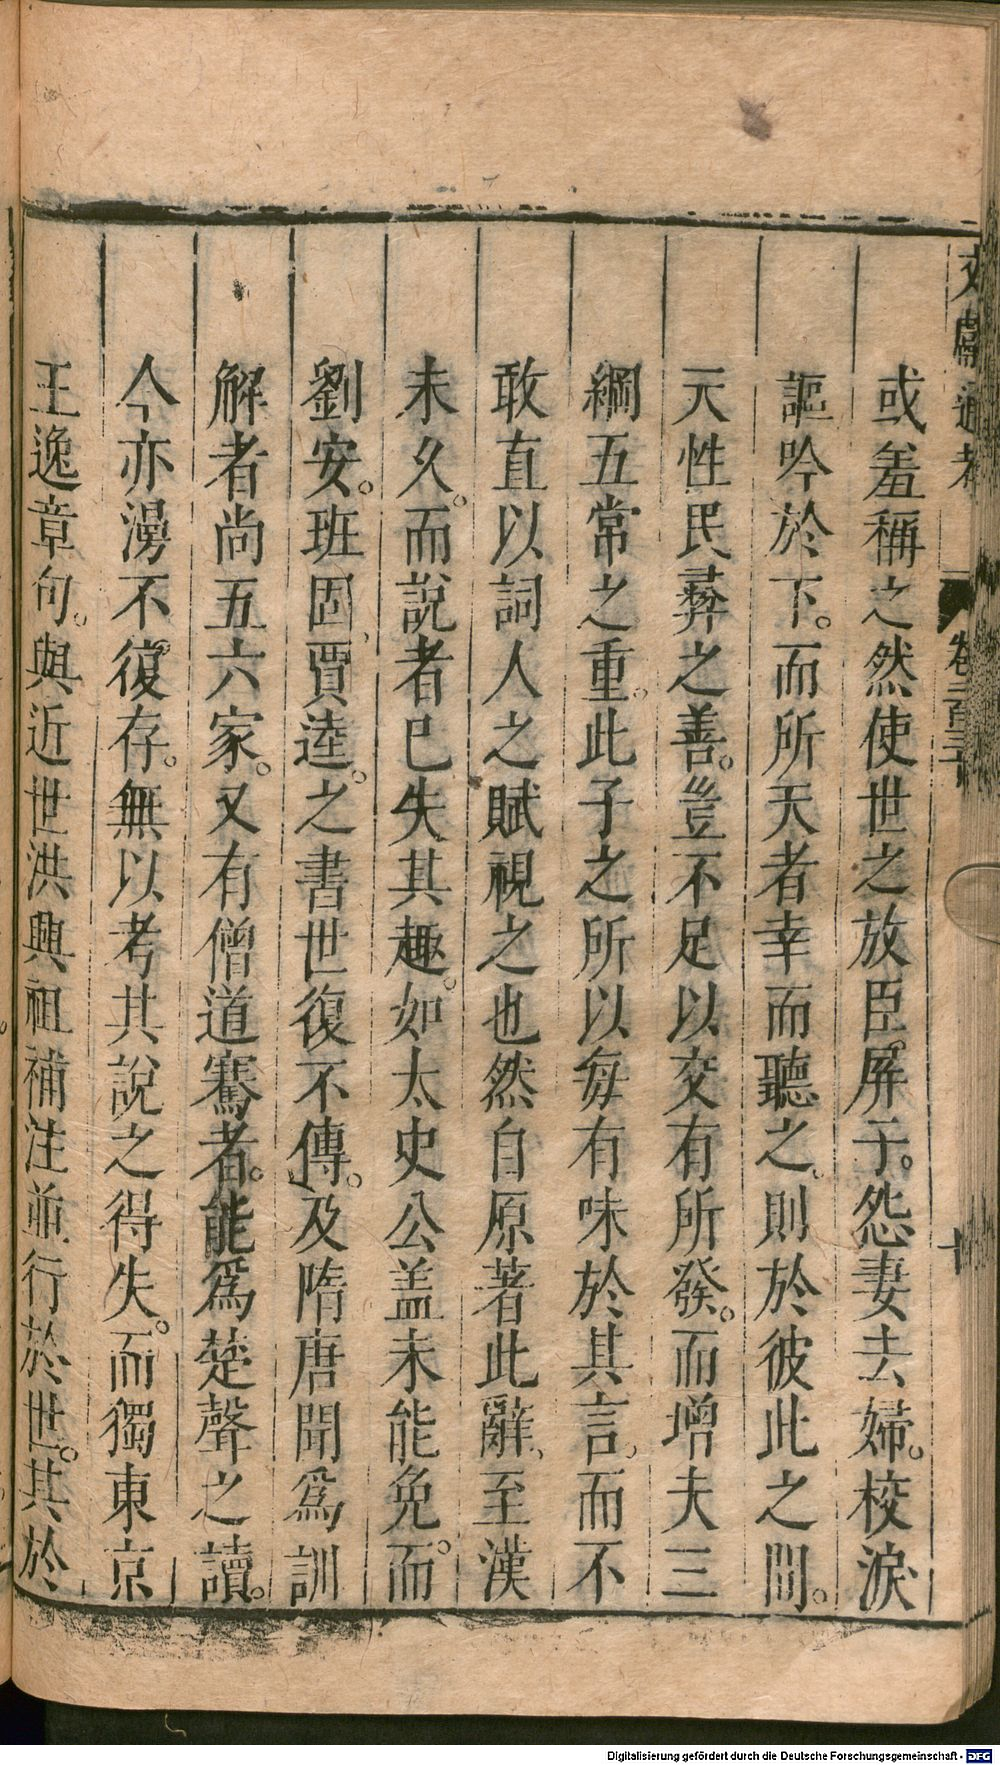 文獻通考 卷二百三十 十
或羞稱之然使世之放臣。屏子。怨妻去婦。校淚
謳吟於下。而所天者幸而聽之。則於彼此之間。
天性民彝之善。豈不足以交有所發。而增夫三
綱五常之重。此子之所以每有味於其言。而不
敢直以詞人之賦視之也然自原著此辭、至漢
未久。而說者已失其趣。如太史公盖未能免。而
劉安。班固、賈逵。之書世復不傳。及隋唐間爲訓
解者尚五六家。又有僧道騫者。能爲楚聲之讀。
今亦漫不復存。無以考其說之得失。而獨東京
王逸章句。與近世洪興祖補注並行於世。其於
Digitalisierung gefördert durch die Deutsche Forschungsgemeinschaft - DFG